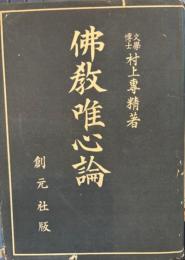 文學博士 村上專精著
佛教唯心論
創元社版